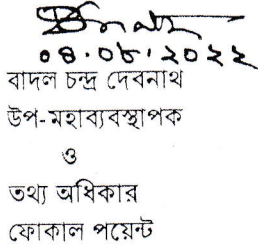 ০৪.০৮.২০২২
বাদল চন্দ্র দেবনাথ
উপ-মহাব্যবস্থাপক
ও
তথ্য অধিকার
ফোকাল পয়েন্ট